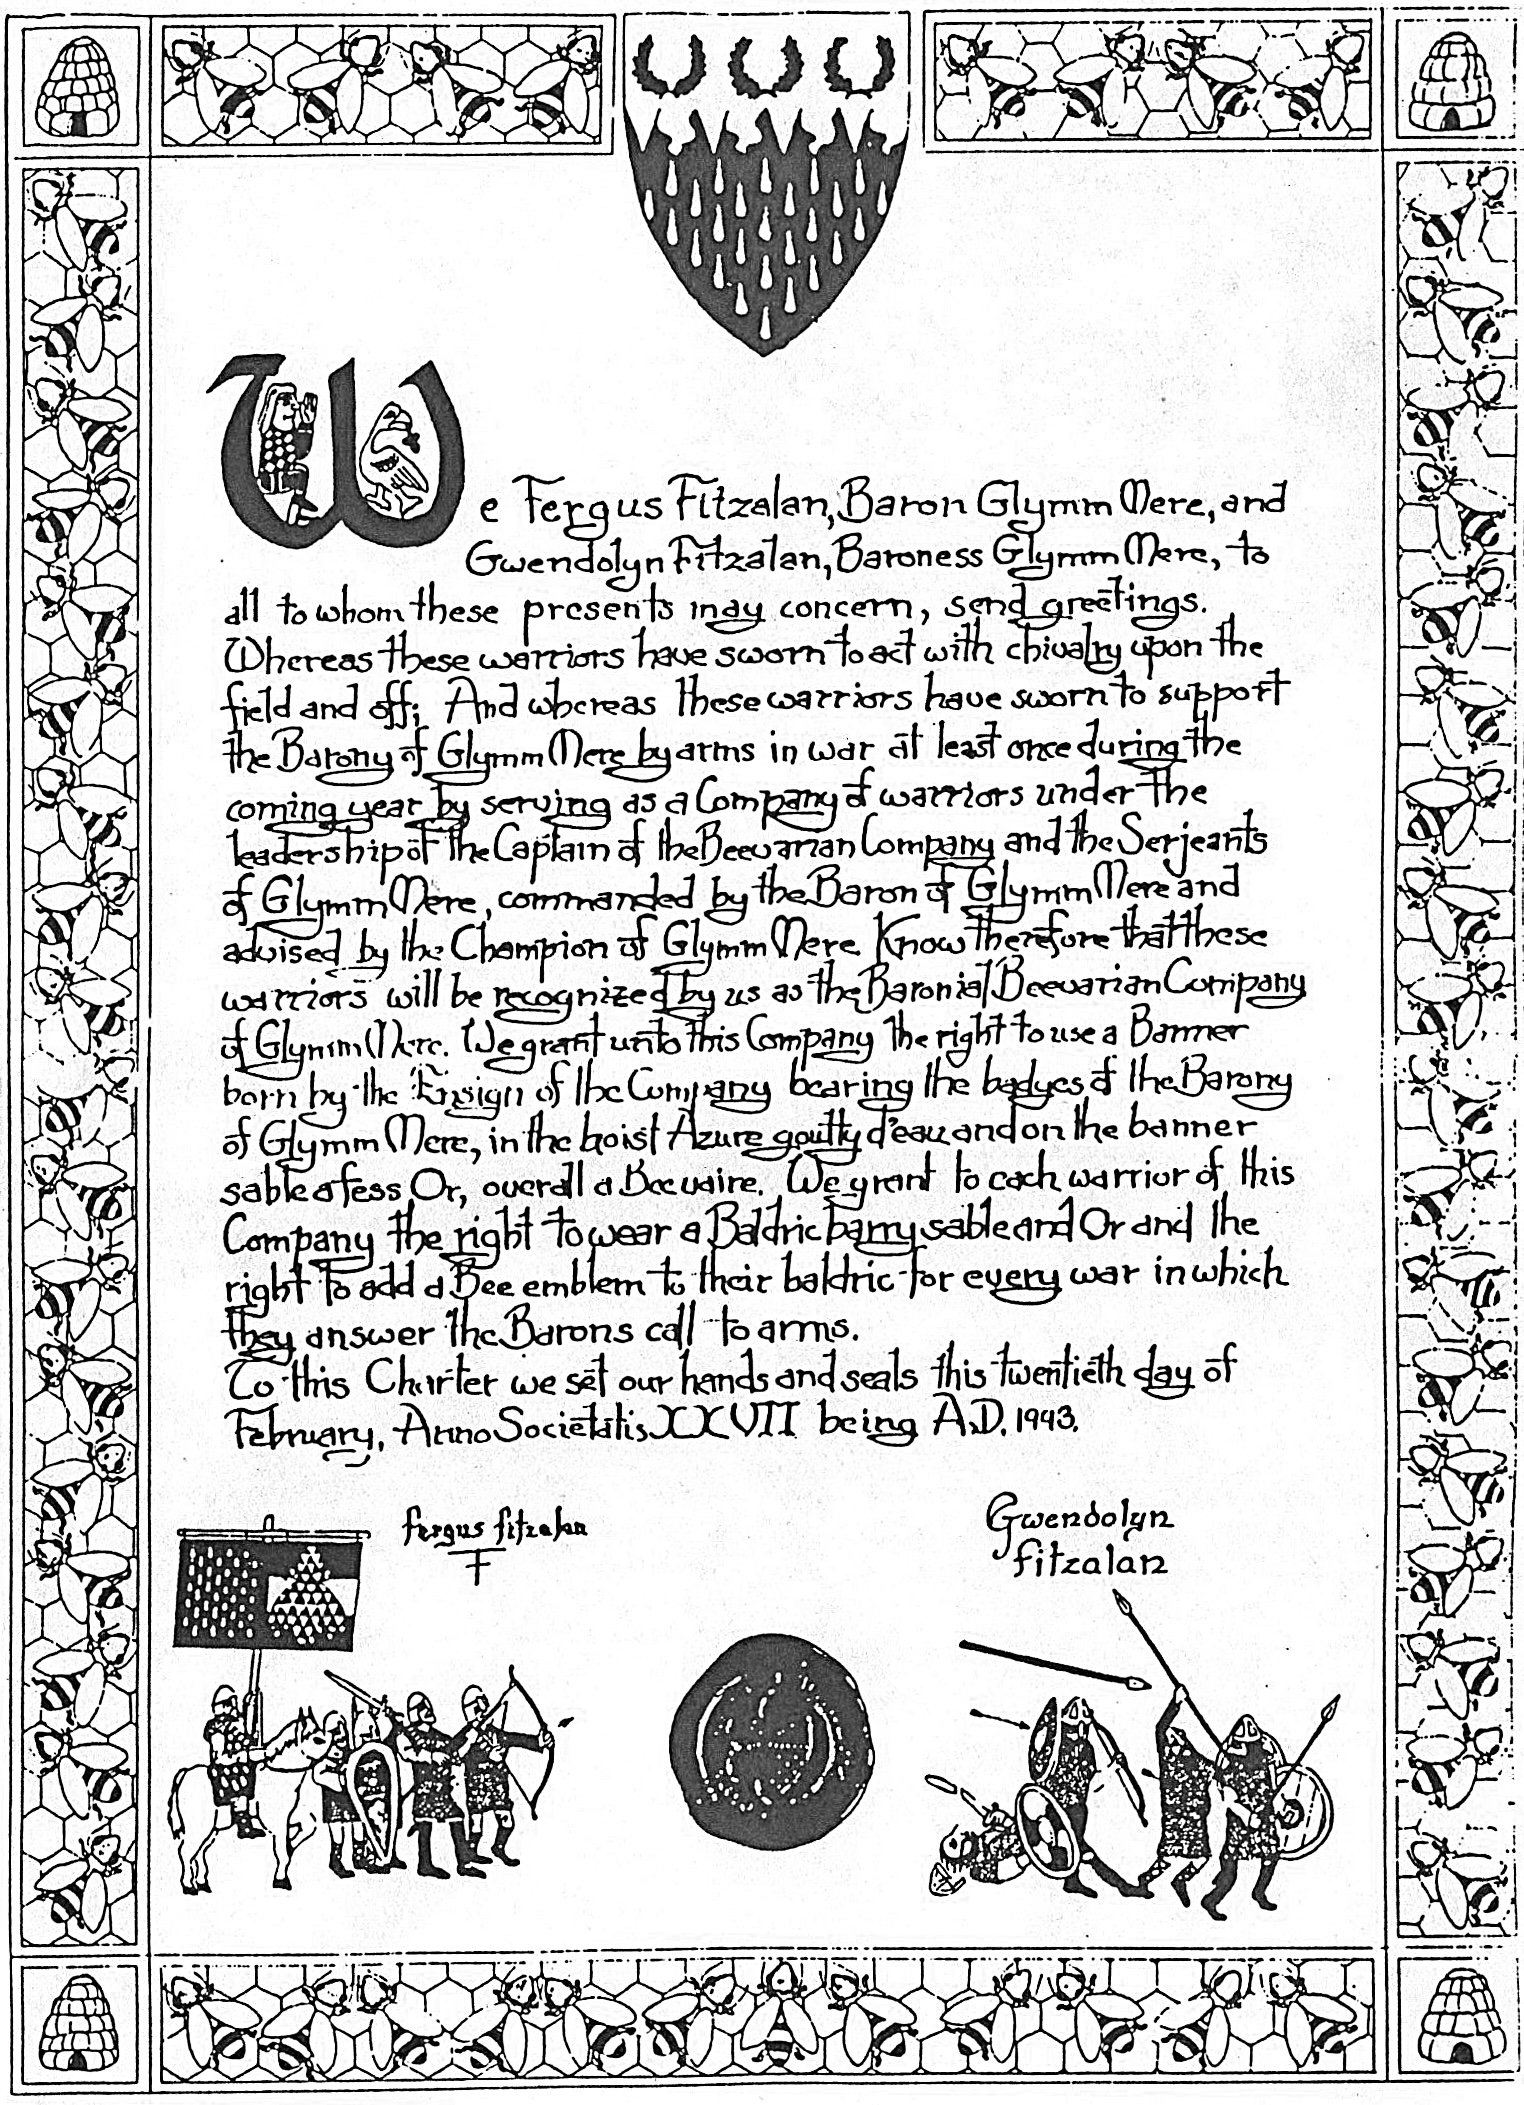 We Fergus Fitzalan, Baron Glymm Mere, and
Gwendolyn Fitzalan, Baroness Glymm Mere, to
all to whom these presents may concern, send greetings.
Whereas these warriors have sworn to act with chivalry upon the
field and off; And whereas these warriors have sworn to support
the Barony of Glymm Mere by arms in war at least once during the
coming year by serving as a Company of warriors under the
leadership of the Captain of the Beevarian Company and the Serjeants
of Glymm Mere, commanded by the Baron of Glymm Mere and
advised by the Champion of Glymm Mere. Know therefore that these
warriors will be recognized by us as the Baronial Beevarian Company
of Glymm Mere. We grant unto this Company the right to use a Banner
born by the Ensign of the Company bearing the badges of the Barony
of Glymm Mere, in the hoist Azure goutty d'eau and on the banner
sable a fess Or, overall a Beevaire. We grant to each warrior of this
Company the right to wear a Baldric barry sable and Or and the
right to add a Bee emblem to their baldric for every war in which
they answer the Barons call to arms.
To this Charter we set our hands and seals this twentieth day of
February, Anno Societatis XXVII being A.D. 1993.
fergus fitzalan
F
Gwendolyn
fitzalan